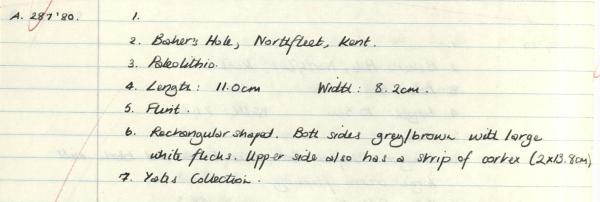 A. 287'80. 1.
2. Baker's Hole, Northfleet, Kent.
3. Paleolithic.
4. Length: 11.0cm Width: 8.2cm.
5. Flint.
6. Rectangular shaped. Both sides grey/brown with large
white flecks. Upper side also has a strip of cortex (2x13.8cm)
7. Yates Collection.